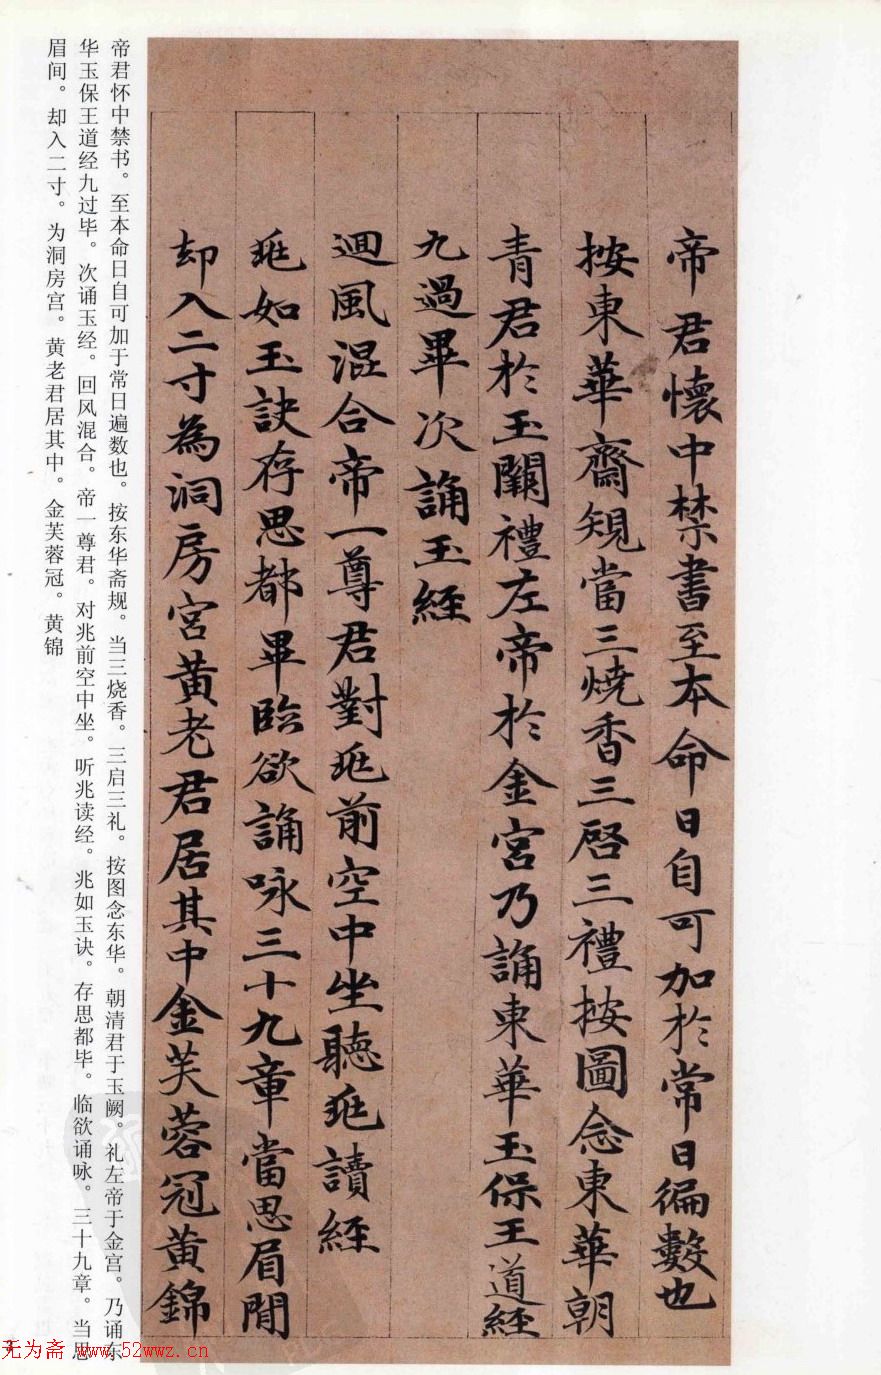 帝君懷中禁書至本命日自可加於常日徧數也
按東華齋規當三燒香三啓三禮按圖念東華朝
青君於玉闕禮左帝於金宮乃誦東華玉保王道經
九過畢次誦玉經
迴風混合帝一尊君對兆前空中坐聽兆讀經
兆如玉訣存思都畢臨欲誦咏三十九章當思眉間
却入二寸為洞房宮黃老君居其中金芙蓉冠黃錦
帝君怀中禁书。至本命日自可加于常日遍数也。按东华斋规。当三烧香。三启三礼。按图念东华。朝清君于玉阙。礼左帝于金宫。乃诵东
华玉保王道经九过毕。次诵玉经。回风混合。帝一尊君。对兆前空中坐。听兆读经。兆如玉诀。存思都毕。临欲诵咏。三十九章。当思
眉间。却入二寸。为洞房宫。黄老君居其中。金芙蓉冠。黄锦
无为斋 www.52wwz.cn